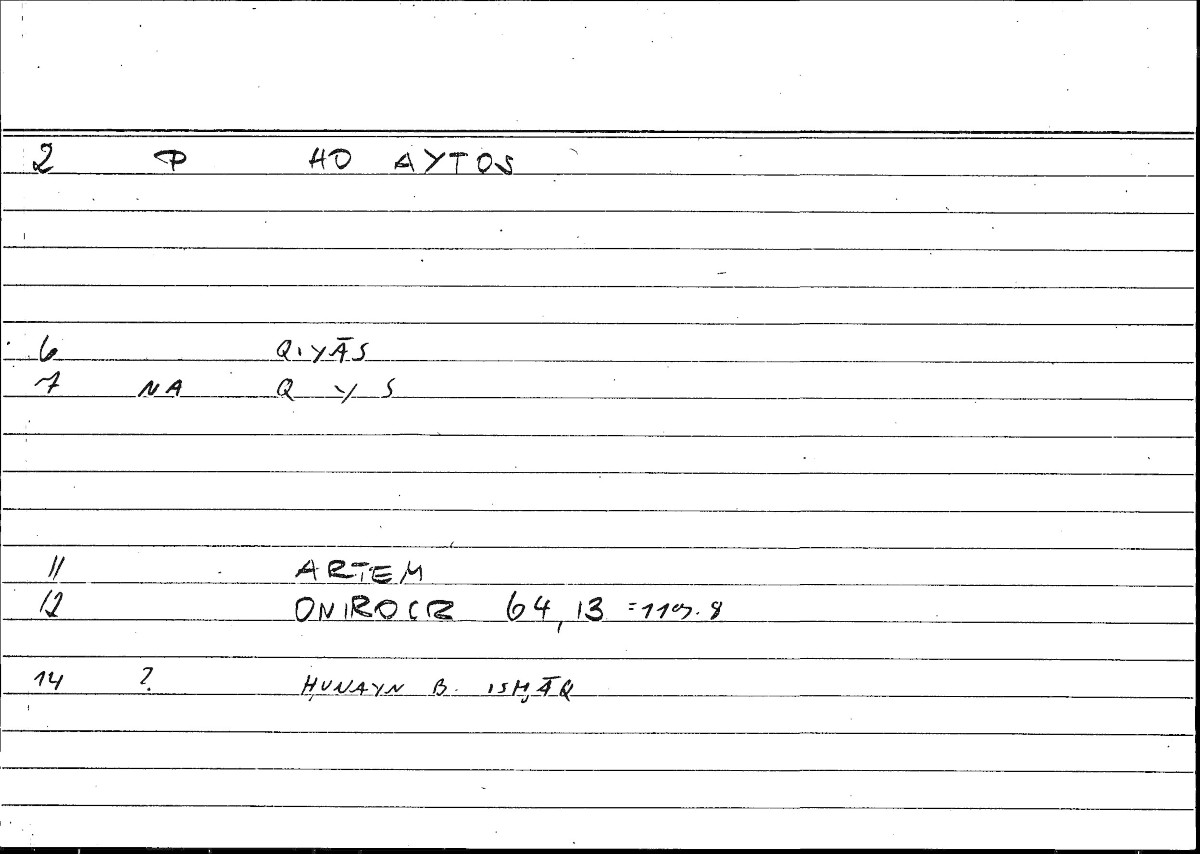 2 P HO AYTOS
6 QIYĀS
7 NA Q Y S
11 ARTEM
12 ONIROCR 64, 13
14 ? ḤUNAYN B. ISḤĀQ